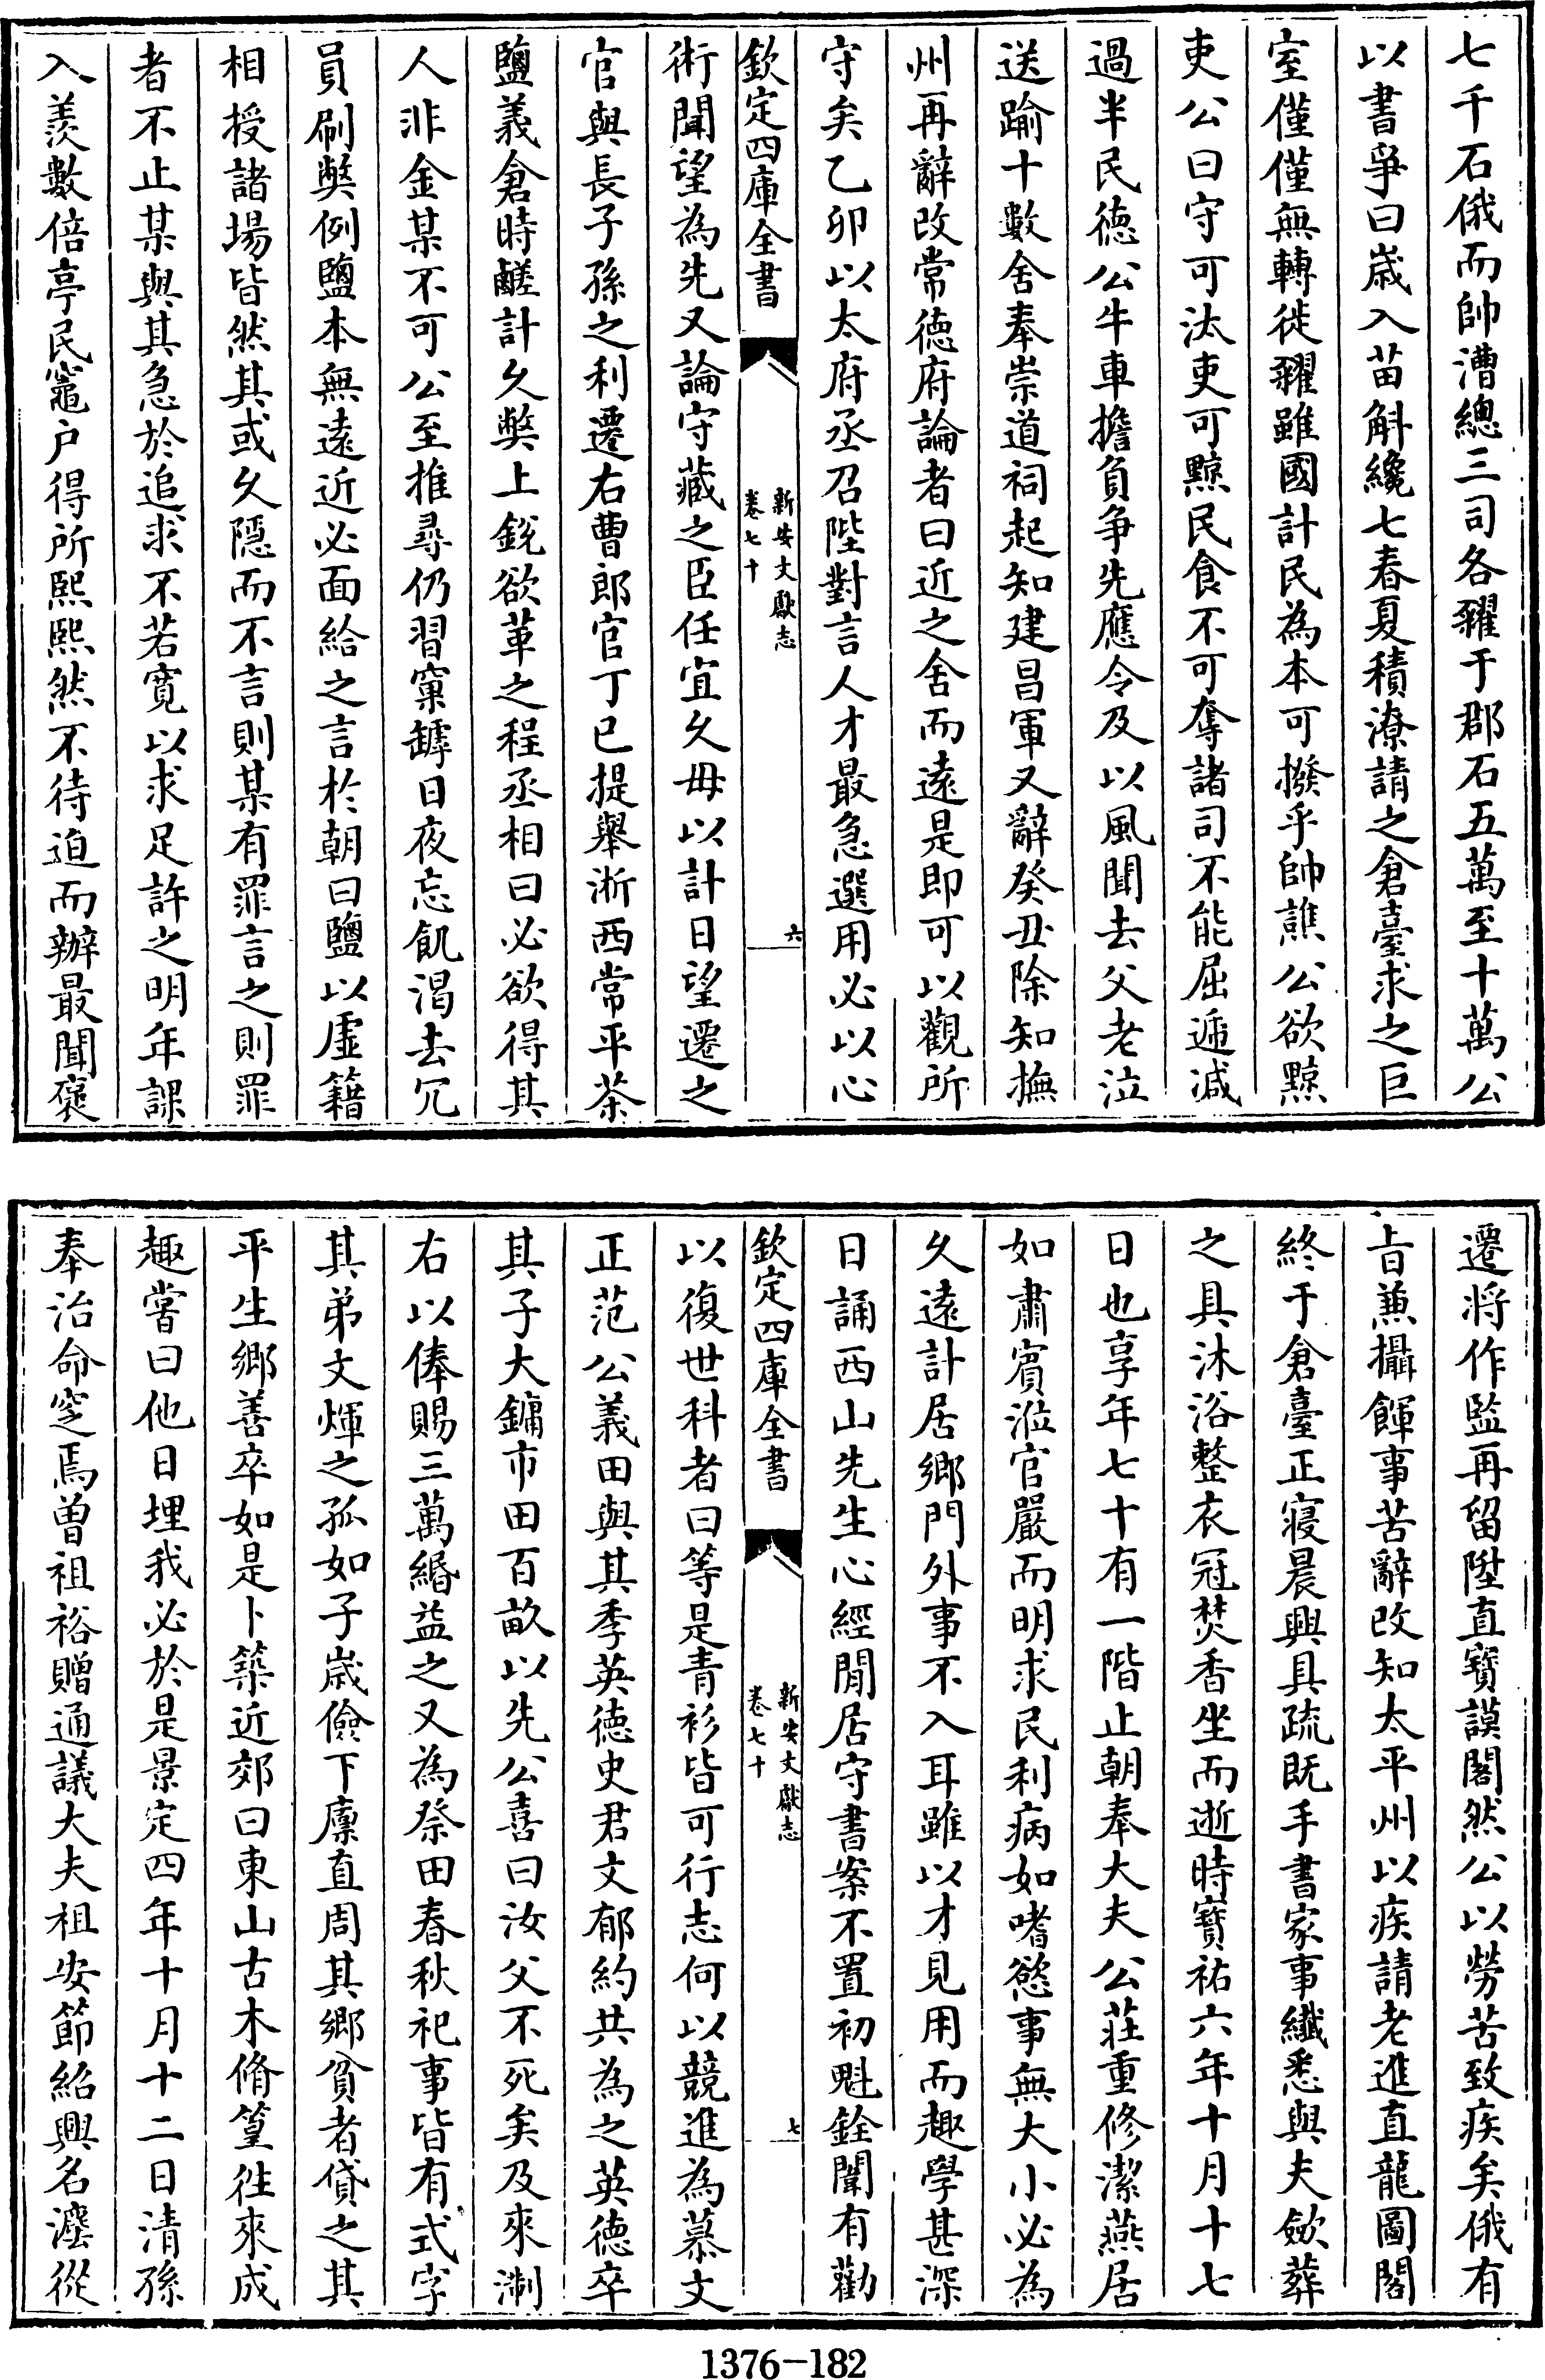 七千石俄而帥漕總三司各糴于郡石五萬至十萬公
以書爭曰歲入苗斛纔七春夏積潦請之倉臺求之巨
室僅僅無轉徙糴雖國計民為本可撥乎帥譙公欲黥
吏公曰守可汰吏可黥民食不可奪諸司不能屈遞減
過半民德公牛車擔負争先應令及以風聞去父老泣
送踰十數舍奉崇道祠起知建昌軍又辭癸丑除知撫
州再辭改常德府論者曰近之舍而遠是即可以觀所
守矣乙卯以太府丞召陛對言人才最急選用必以心
欽定四庫全書
新安文獻志
卷七十
六
術聞望為先又論守藏之臣任宜久毋以計日望遷之
官與長子孫之利遷右曹郎官丁巳提舉浙西常平茶
鹽義倉時鹺計久弊上銳欲革之程丞相曰必欲得其
人非金某不可公至推尋仍習窠罅日夜忘飢渴去冗
員刷弊例鹽本無遠近必面給之言於朝曰鹽以虛籍
相授諸場皆然其或久隱而不言則某有罪言之則罪
者不止某與其急於追求不若寛以求足許之明年課
入羨數倍亭民竈户得所熙熙然不待迫而辦最聞褒
遷將作監再留陞直寶謨閣然公以勞苦致疾矣俄有
旨兼攝餫事苦辭改知太平州以疾請老進直龍圖閣
終于倉臺正寢晨興具疏既手書家事纎悉與夫斂葬
之具沐浴整衣冠焚香坐而逝時寶祐六年十月十七
日也享年七十有一階止朝奉大夫公莊重修潔燕居
如肅賓涖官嚴而明求民利病如嗜慾事無大小必為
久遠計居鄉門外事不入耳雖以才見用而趣學甚深
日誦西山先生心經閒居守書案不置初魁銓闈有勸
欽定四庫全書
新安文獻志
卷七十
七
以復世科者曰等是青衫皆可行志何以競進為慕文
正范公義田與其季英德史君文郁約共為之英德卒
其子大鏞市田百畝以先公喜曰汝父不死矣及來淛
右以俸賜三萬緡益之又為祭田春秋祀事皆有式字
其弟文煇之孤如子歲儉下廪直周其鄉貧者貸之其
平生鄉善卒如是卜築近郊曰東山古木脩篁徃來成
趣嘗曰他日埋我必於是景定四年十月十二日清孫
奉治命窆焉曾祖裕贈通議大夫祖安節紹興名瀊從
1376-182